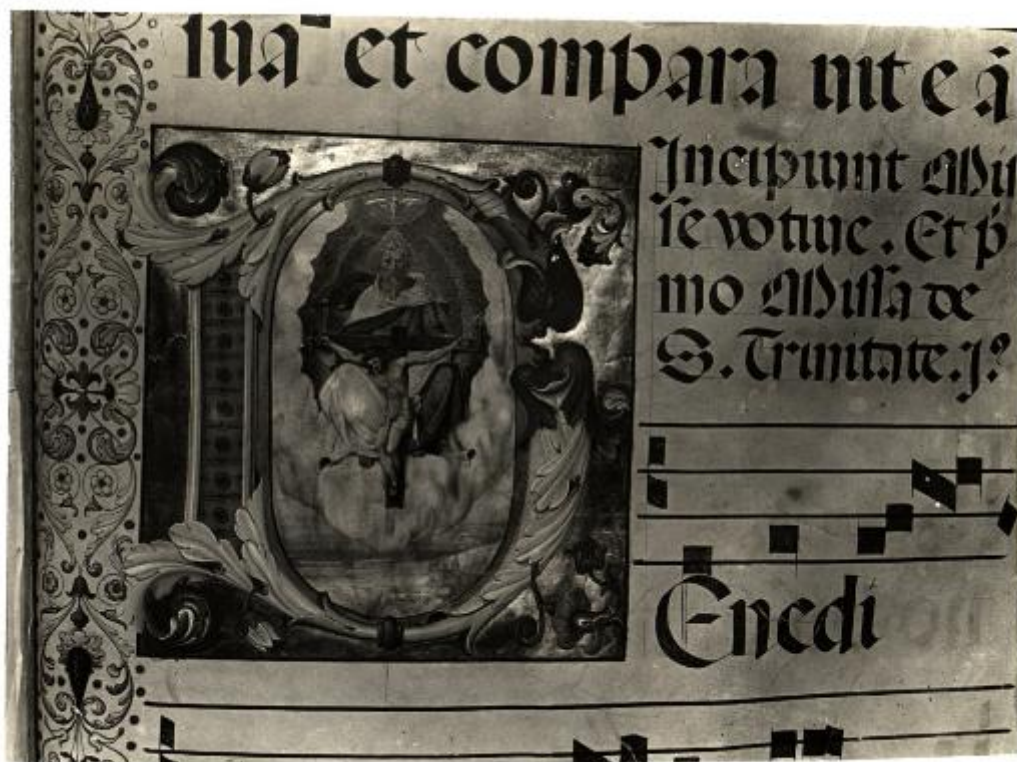 et compara uit e ā
Incipiunt Mis
se votiue. Et p̍
mo Missa de
S. Trinitate. j?
Enedi